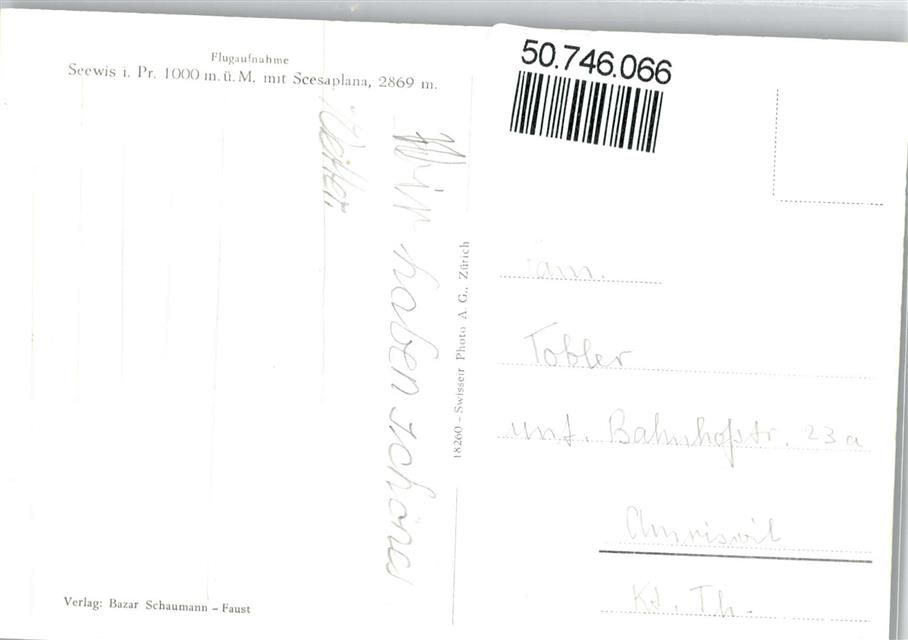 Flugaufnahme
Seewis i. Pr. 1000 m. ü. M. mit Scesaplana, 2869 m.
Wir haben schönes
Wetter.
Verlag: Bazar Schaumann - Faust
18260 - Swissair Photo A. G., Zürich
50.746.066
Fam.
Tobler
unt. Bahnhofstr. 23a
Amriswil
Kt. Th.